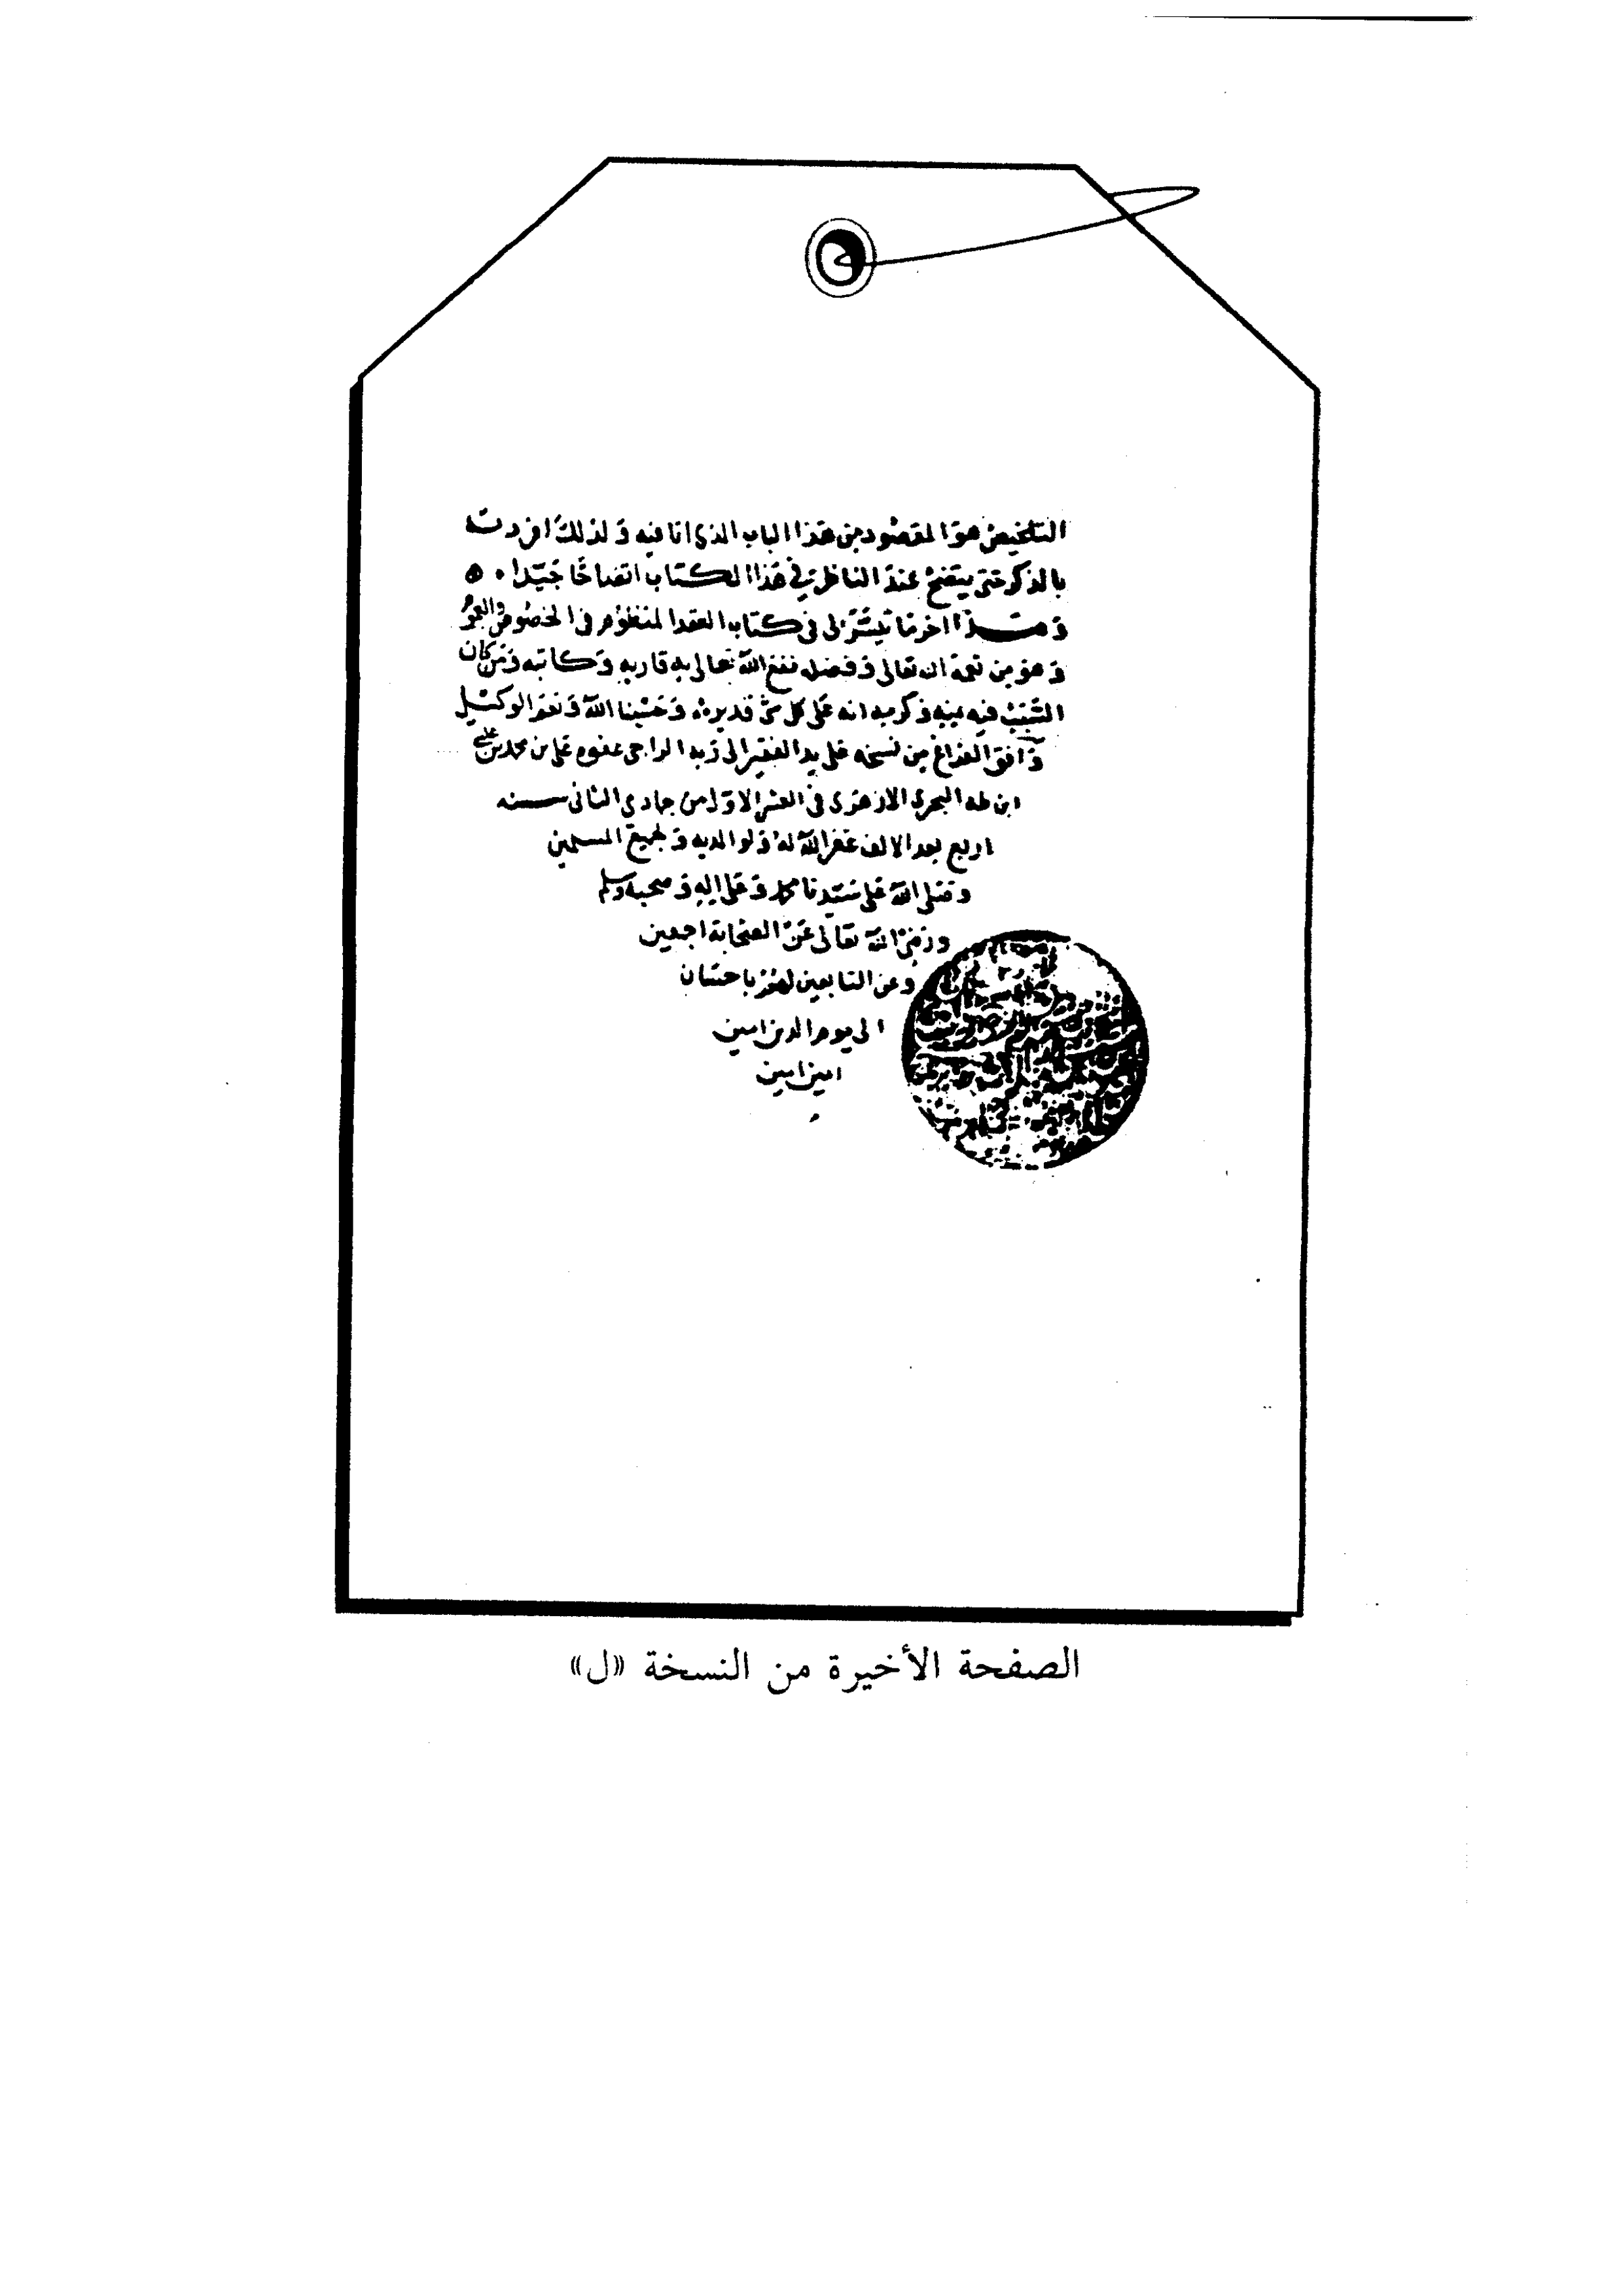 التلخيص هو المقصود من هذا الباب الذي انا فيه و لذلك افردت
بالذكر حتى يتضح عند الناظر في هذا الكتاب اتضاحًا جَيّدا ه
وهذا اخر ما تيسّر لى فى كتاب العقد المنظوم فى الخصوص والعموم
وهو من نعمة الله تعالى و فضله نفع الله تعالى به قاريه وكاتبه ومن كان
السَّبَب فيه بمنه وكرمه انه على كل شئ قدير وحسبنا الله ونعم الوكيل
وَافق الفراغ من نسخه على يد الفقير الى ربه الراجى عفوه على بن محمد بن على
ابن طه البحرى الازهرى فى العشر الاول من جمادى الثانى سنه
اربع بعد الالف غفر الله له ولوالديه ولجميع المسلمين
وصلى الله على سيّدنا محمد وعلى اله وصحبه وسلم
ورضى الله تعالى عن الصحابة اجمعين
وعن التابعين لهم باحسان
الى يوم الدين امين
امين امين
الصفحة الأخيرة من النسخة «ل»